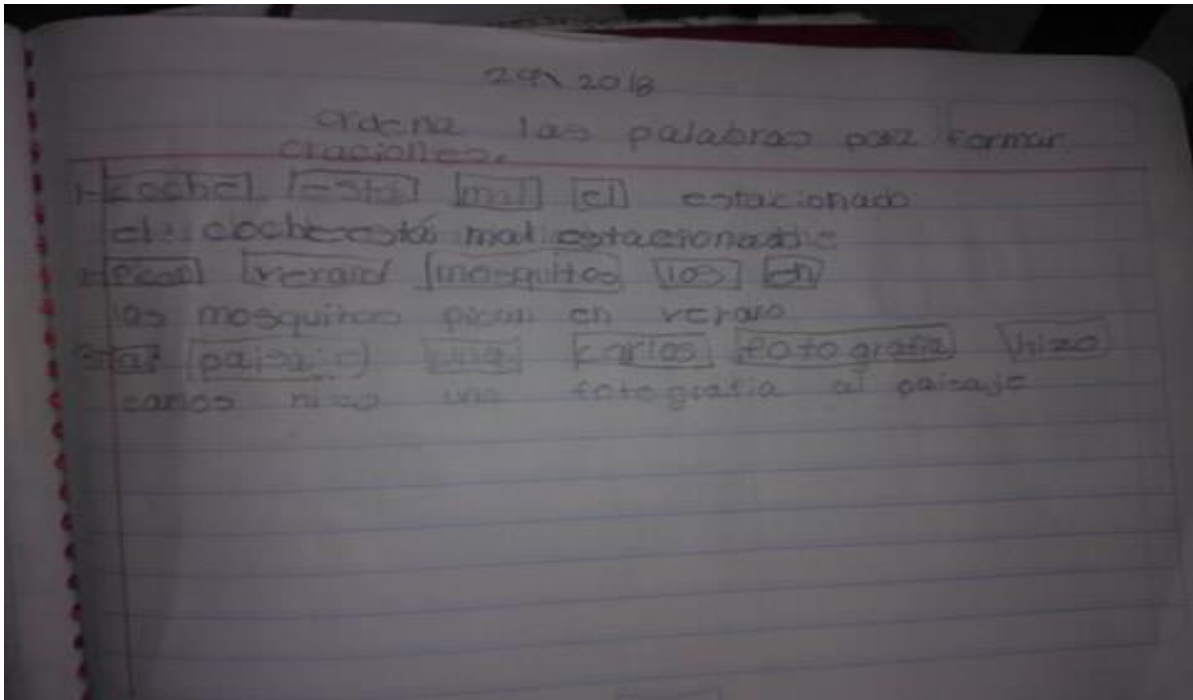 2018
ordena las palabras para formar
oraciones.
1- coche está mal el estacionado
el coche está mal estacionado
2- Pican verano mosquitos los en
los mosquitos pican en verano
3- al paisaje una Carlos fotografía hizo
carlos hizo una fotografia al paisaje